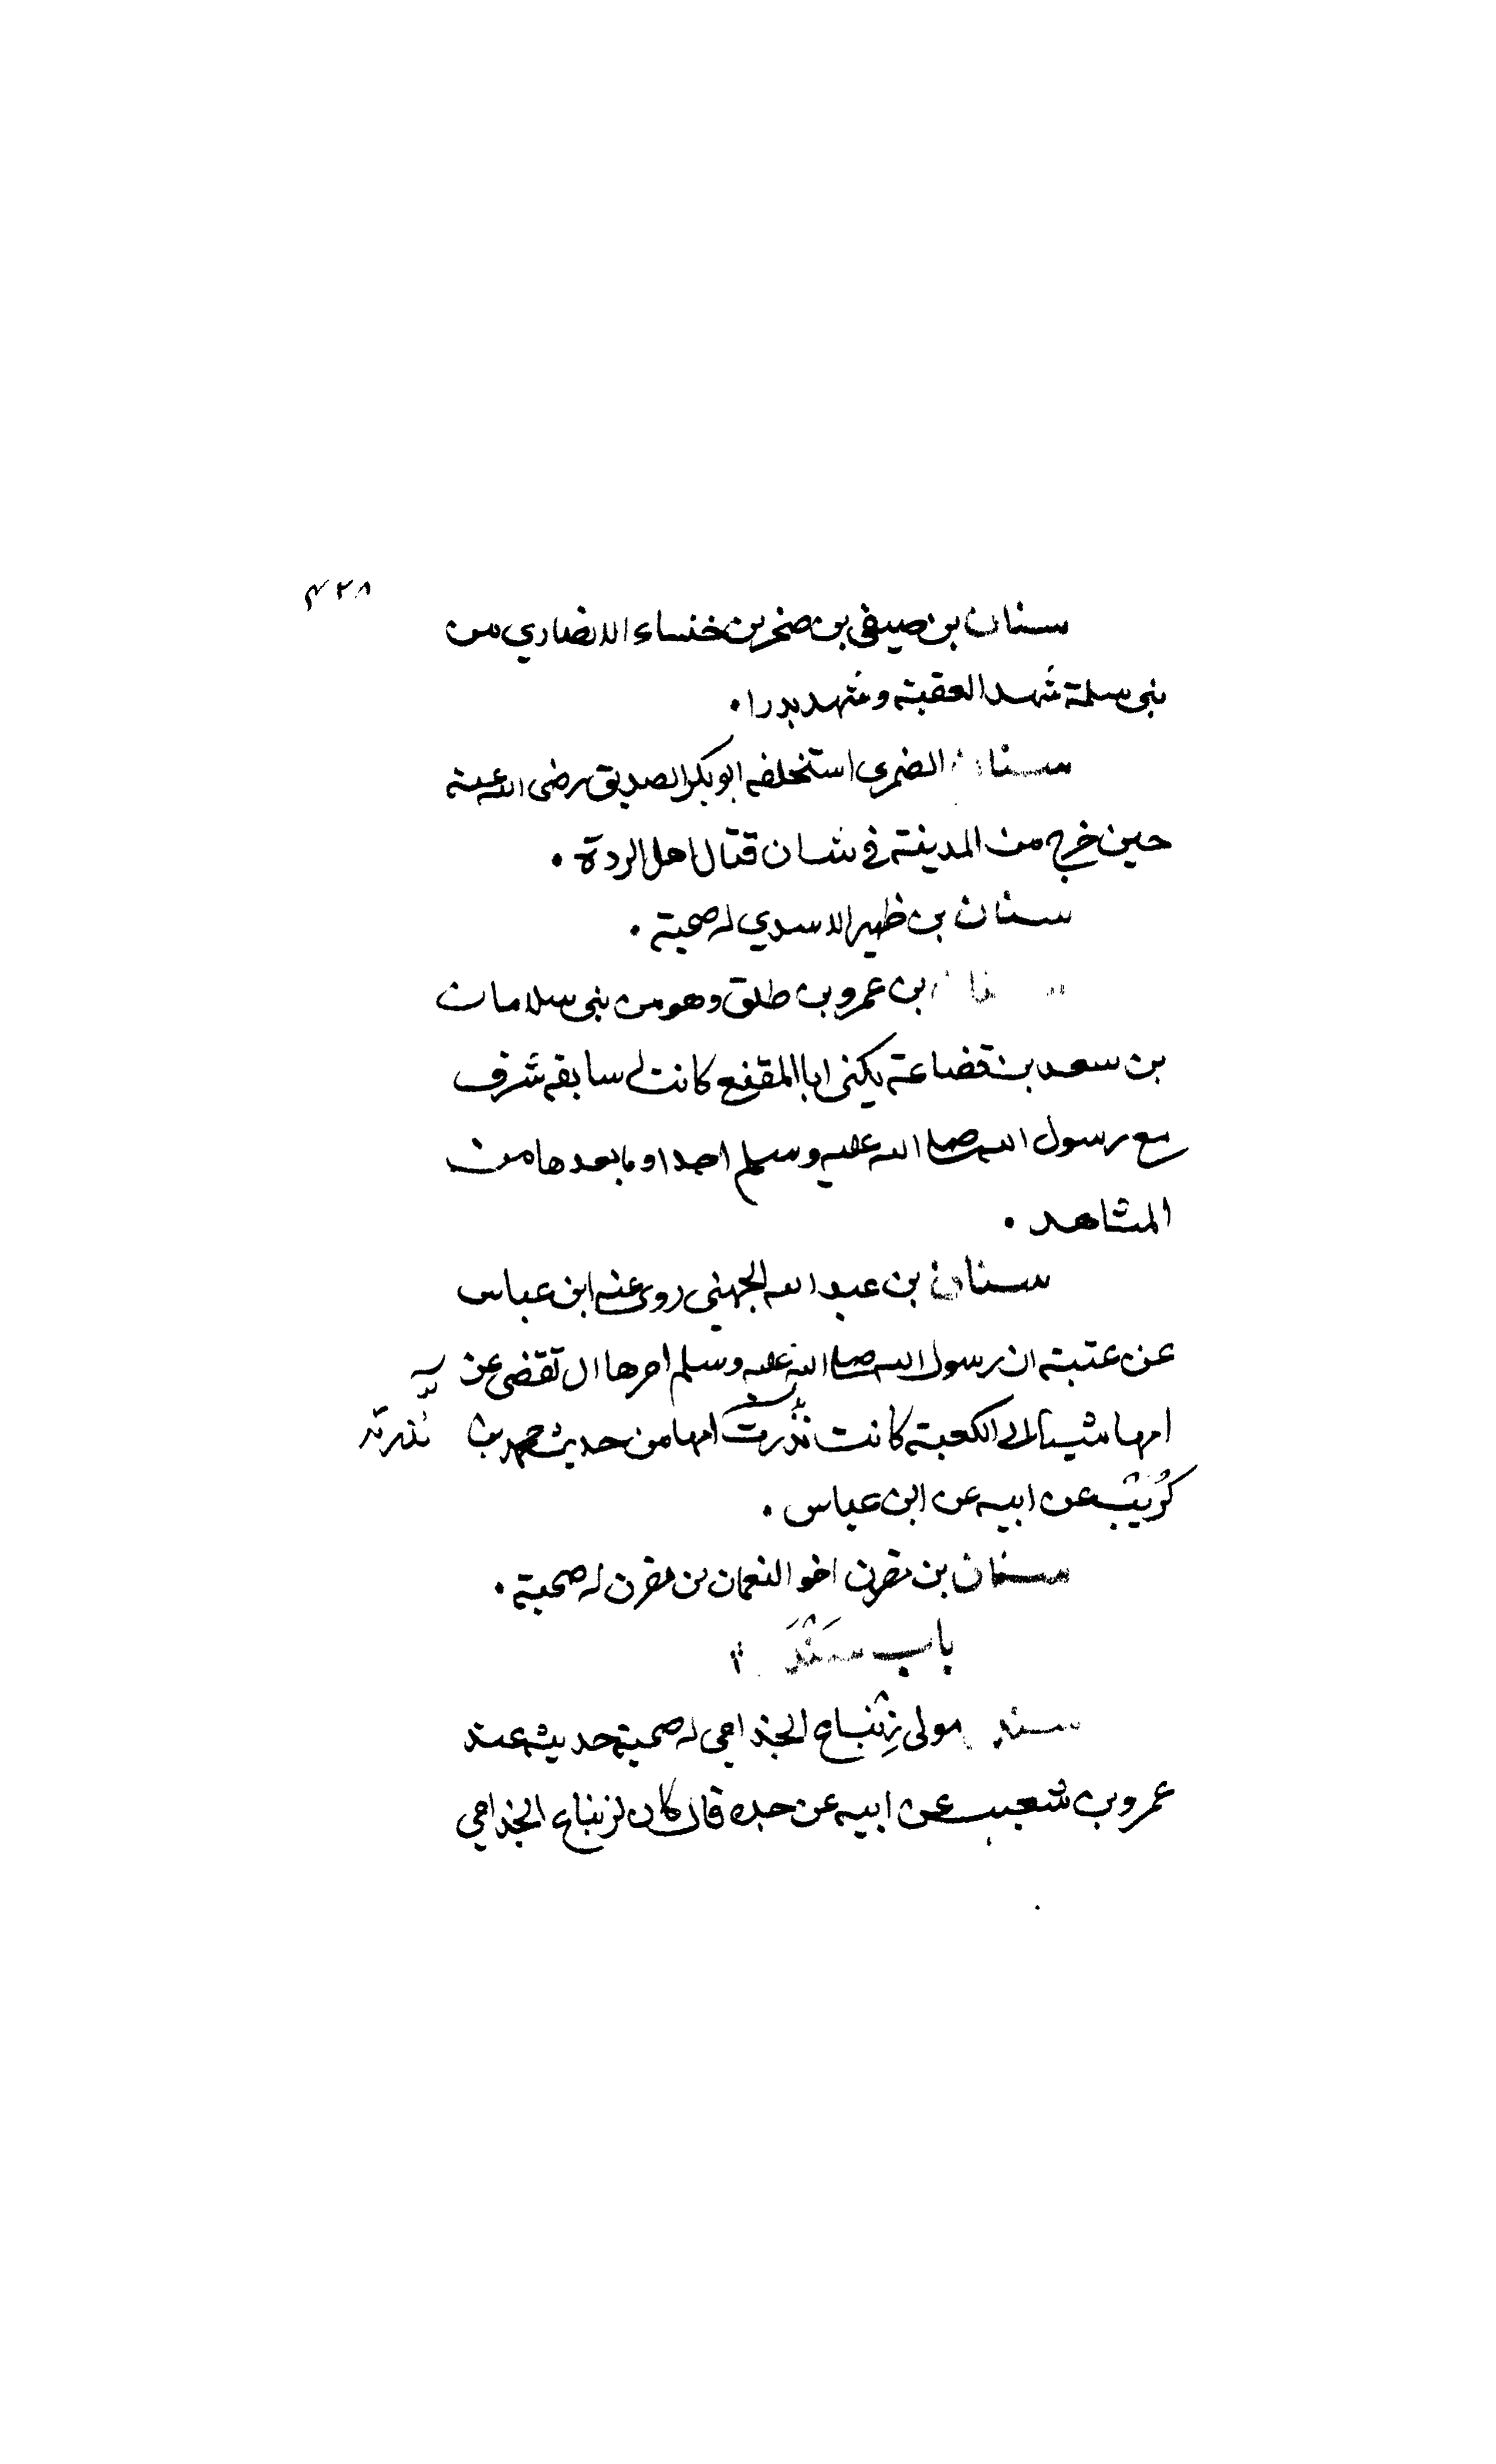 ٤٢٨
سنان بن صيفي بن صخر بن خنساء الانصاري من
بني سلمة شهد العقبة وشهد بدرا.
سنان الضمري استخلفه ابو بكر الصديق رضى الله عنه
حين خرج من المدينة في شان قتال اهل الردة.
سنان بن ظهير الاسدي له صحبة.
سنان بن عمرو بن طلق وهو من بني سلامان
بن سعد بن قضاعة يكنى ابا المقنع كانت له سابقه شرف
مع رسول الله صلى الله عليه وسلم احدا وما بعدها من
المشاهد.
سنان بن عبد الله الجهني روى عنه ابن عباس
عن عتبته ان رسول الله صلى الله عليه وسلم امرها ان تقضى عن
امها مشيا الى الكعبة كانت نذرت امها من حديث محمد بن
نذرته
كريب عن ابيه عن ابن عباس.
سنان بن مقرن اخو النعمان بن مقرن له صحبة.
باب سندر
سندر مولى زنباع الجذامي له صحبة حديثه عند
عمرو بن شعيب عن ابيه عن جده قال كان لزنباع الجذامي